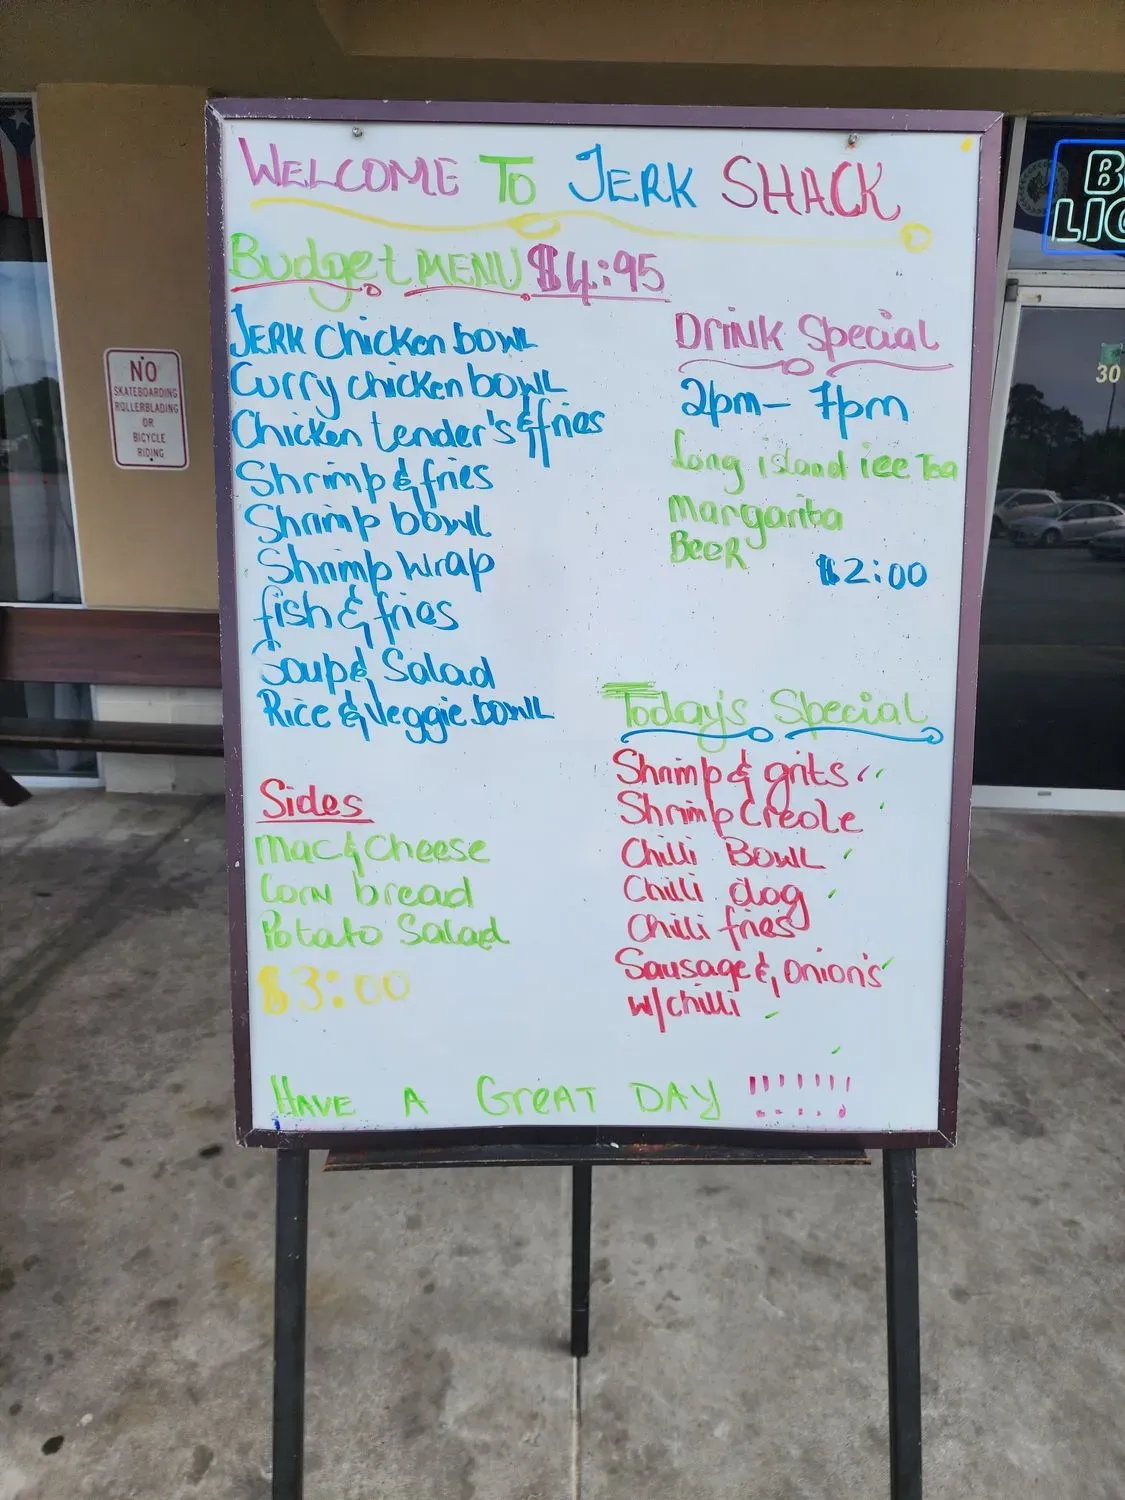 WELCOME TO JERK SHACK
Budget MENU $4:95
JERK Chicken bowl
Curry chicken bowl
Chicken tender's & fries
Shrimp & fries
Shrimp bowl
Shrimp wrap
fish & fries
Soup & Salad
Rice & Veggie bowl
Sides
Mac & Cheese
Corn bread
Potato Salad
$3:00
Drink Special
2pm - 7pm
Long island ice Tea
Margarita
BeeR
$2:00
Today's Special
Shrimp & grits
Shrimp Creole
Chilli Bowl
Chilli dog
Chilli fries
Sausage & onion's
w/chilli
HAVE A GreAT DAY !!!!!!!
NO
SKATEBOARDING
ROLLERBLADING
OR
BICYCLE
RIDING
30